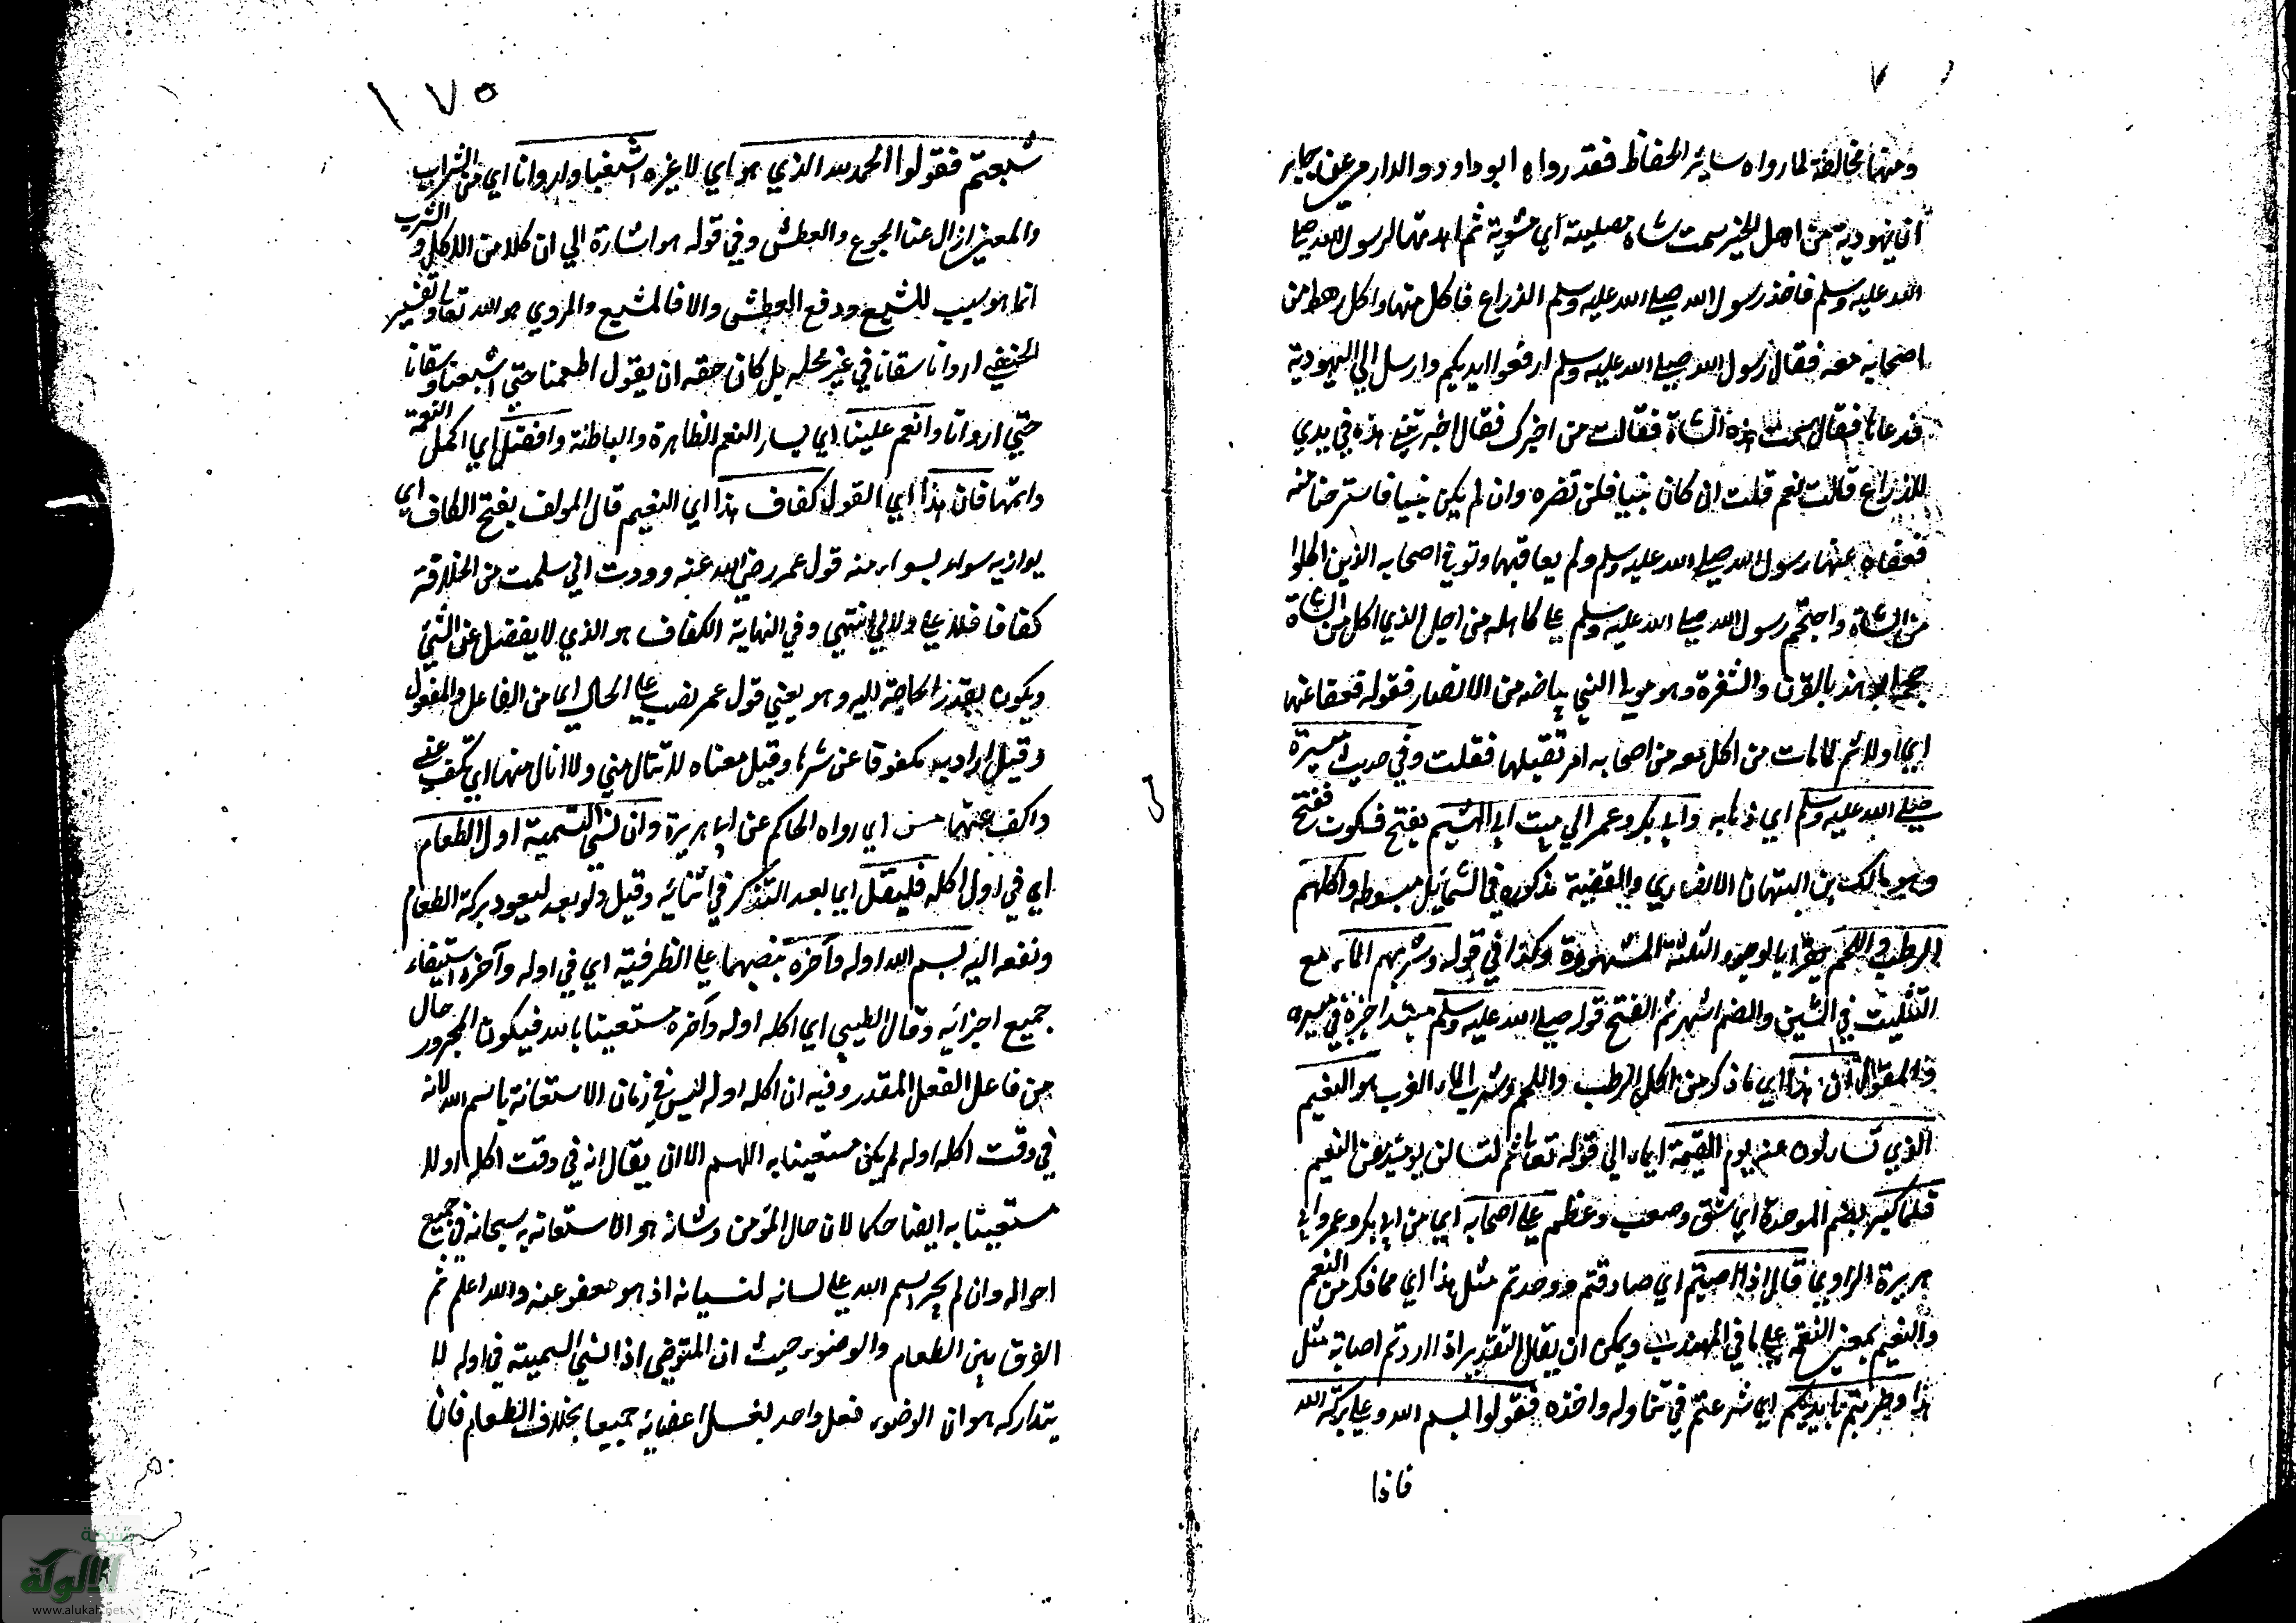 ومنها مخالفة لما رواه سائر الحفاظ فقد رواه ابو داود والدارمي عن جابر
ان يهودية من اهل خيبر سمت شاة مصلية اي مشوية ثم اهدتها لرسول الله صلى
الله عليه وسلم فاخذ رسول الله صلى الله عليه وسلم الذراع فاكل منها واكل رهط من
اصحابه معه فقال رسول الله صلى الله عليه وسلم ارفعوا ايديكم وارسل الي اليهودية
فدعاها فقال سممت هذه الشاة فقالت من اخبرك فقال اخبرتني هذه في يدي
للذراع قالت نعم قلت ان كان نبيا فلن تضره وان لم يكن نبيا فاسترحنا منه
فعفا عنها رسول الله صلى الله عليه وسلم ولم يعاقبها وتوفي اصحابه الذين اكلوا
من الشاة واحتجم رسول الله صلى الله عليه وسلم علي كاهله من اجل الذي اكل من الشاة
حجمه ابو هند بالقرن والشفرة وهو مولي لبني بياضه من الانصار فقوله فعفا عنها
اي اولا ثم لما مات من اكل معه من اصحابه امر بقتلها فقتلت وفي حديث مسيره
صلى الله عليه وسلم اي ذهابه وابي بكر وعمر الي بيت ابي الهيثم بفتح فسكون ففتح
وهو مالك بن التيهان الانصاري والقضية مذكوره في الشمائل مبسوطه واكلهم
الرطب واللحم يقرا بالوجوه الثلثة المشهورة وكذا في قوله وشربهم الماء مع
التثليث في الشين والضم اشهر ثم الفتح قوله صلى الله عليه وسلم مبتدا خبره في مسيره
والمقول ان هذا اي ما ذكر من اكل الرطب واللحم وشرب الماء العذب هو النعيم
الذي تسالون عنه يوم القيمة ايماء الي قوله تعالى ثم لتسالن يومئذ عن النعيم
فلما كبر بضم الموحدة اي شق وصعب وعظم علي اصحابه اي من ابي بكر وعمر وابي
هريرة الراوي قال اذا اصبتم اي صادفتم ووجدتم مثل هذا اي مما ذكر من النعم
والنعيم بمعني النعمة علي ما في المهذب ويمكن ان يقال التقدير اذا اردتم اصابة مثل
هذا وضربتم بايديكم اي شرعتم في تناوله واخذه فقولوا بسم الله وعلي بركة الله
فاذا
١٧٥
شبعتم فقولوا الحمد لله الذي هو اي لا غيره اشبعنا واروانا اي من الشراب
والمعني ازال عنا الجوع والعطش وفي قوله هو اشارة الي ان كلا من الاكل والشرب
انما هو سبب للشبع ودفع العطش والا فالمشبع والمروي هو الله تعالى وتفسير
الحنفي اروانا سقانا في غير محله بل كان حقه ان يقول اطعمنا حتي اشبعنا وسقانا
حتي اروانا وانعم علينا اي بسائر النعم الظاهرة والباطنة وافضل اي اكمل النعمة
واتمها فان هذا اي القول كفاف هذا اي النعيم قال المولف بفتح الكاف اي
يوازيه سواء بسواء منه قول عمر رضي الله عنه وودت اني سلمت من الخلافة
كفافا فلا علي ولا لي انتهي وفي النهاية الكفاف هو الذي لا يفضل عن الشئ
ويكون بقدر الحاجة اليه وهو يعني قول عمر نصب علي الحال اما من الفاعل او المفعول
وقيل اراد به مكفوفا عن شرها وقيل معناه لا تنال مني ولا انال منها اي تكف عني
واكف عنها مس اي رواه الحاكم عن ابي هريرة وان نسي التسمية اول الطعام
اي في اول اكله فليقل اي بعد التذكر في اثنائه وقيل ولو بعد ليعود بركة الطعام
ونفعه اليه بسم الله اوله وآخره بنصبهما علي الظرفية اي في اوله وآخره استيفاء
جميع اجزائه وقال الطيبي اي اكله اوله وآخره مستعينا بالله فيكون المجرور حال
من فاعل الفعل المقدر وفيه ان اكله اوله ليس في زمان الاستعانة باسم الله لانه
في وقت اكله اوله لم يكن مستعينا به اللهم الا ان يقال انه في وقت اكله اولا
مستعينا به ايضا حكما لان حال المؤمن وشانه هو الاستعانة به سبحانه في جميع
احواله وان لم يجر اسم الله علي لسانه لنسيانه اذ هو معفو عنه والله اعلم ثم
الفرق بين الطعام والوضوء حيث ان المتوضي اذا نسي التسمية في اوله لا
يتداركه هو ان الوضوء فعل واحد لغسل اعضائه جميعا بخلاف الطعام فان
شبكة
الألوكة
www.alukah.net